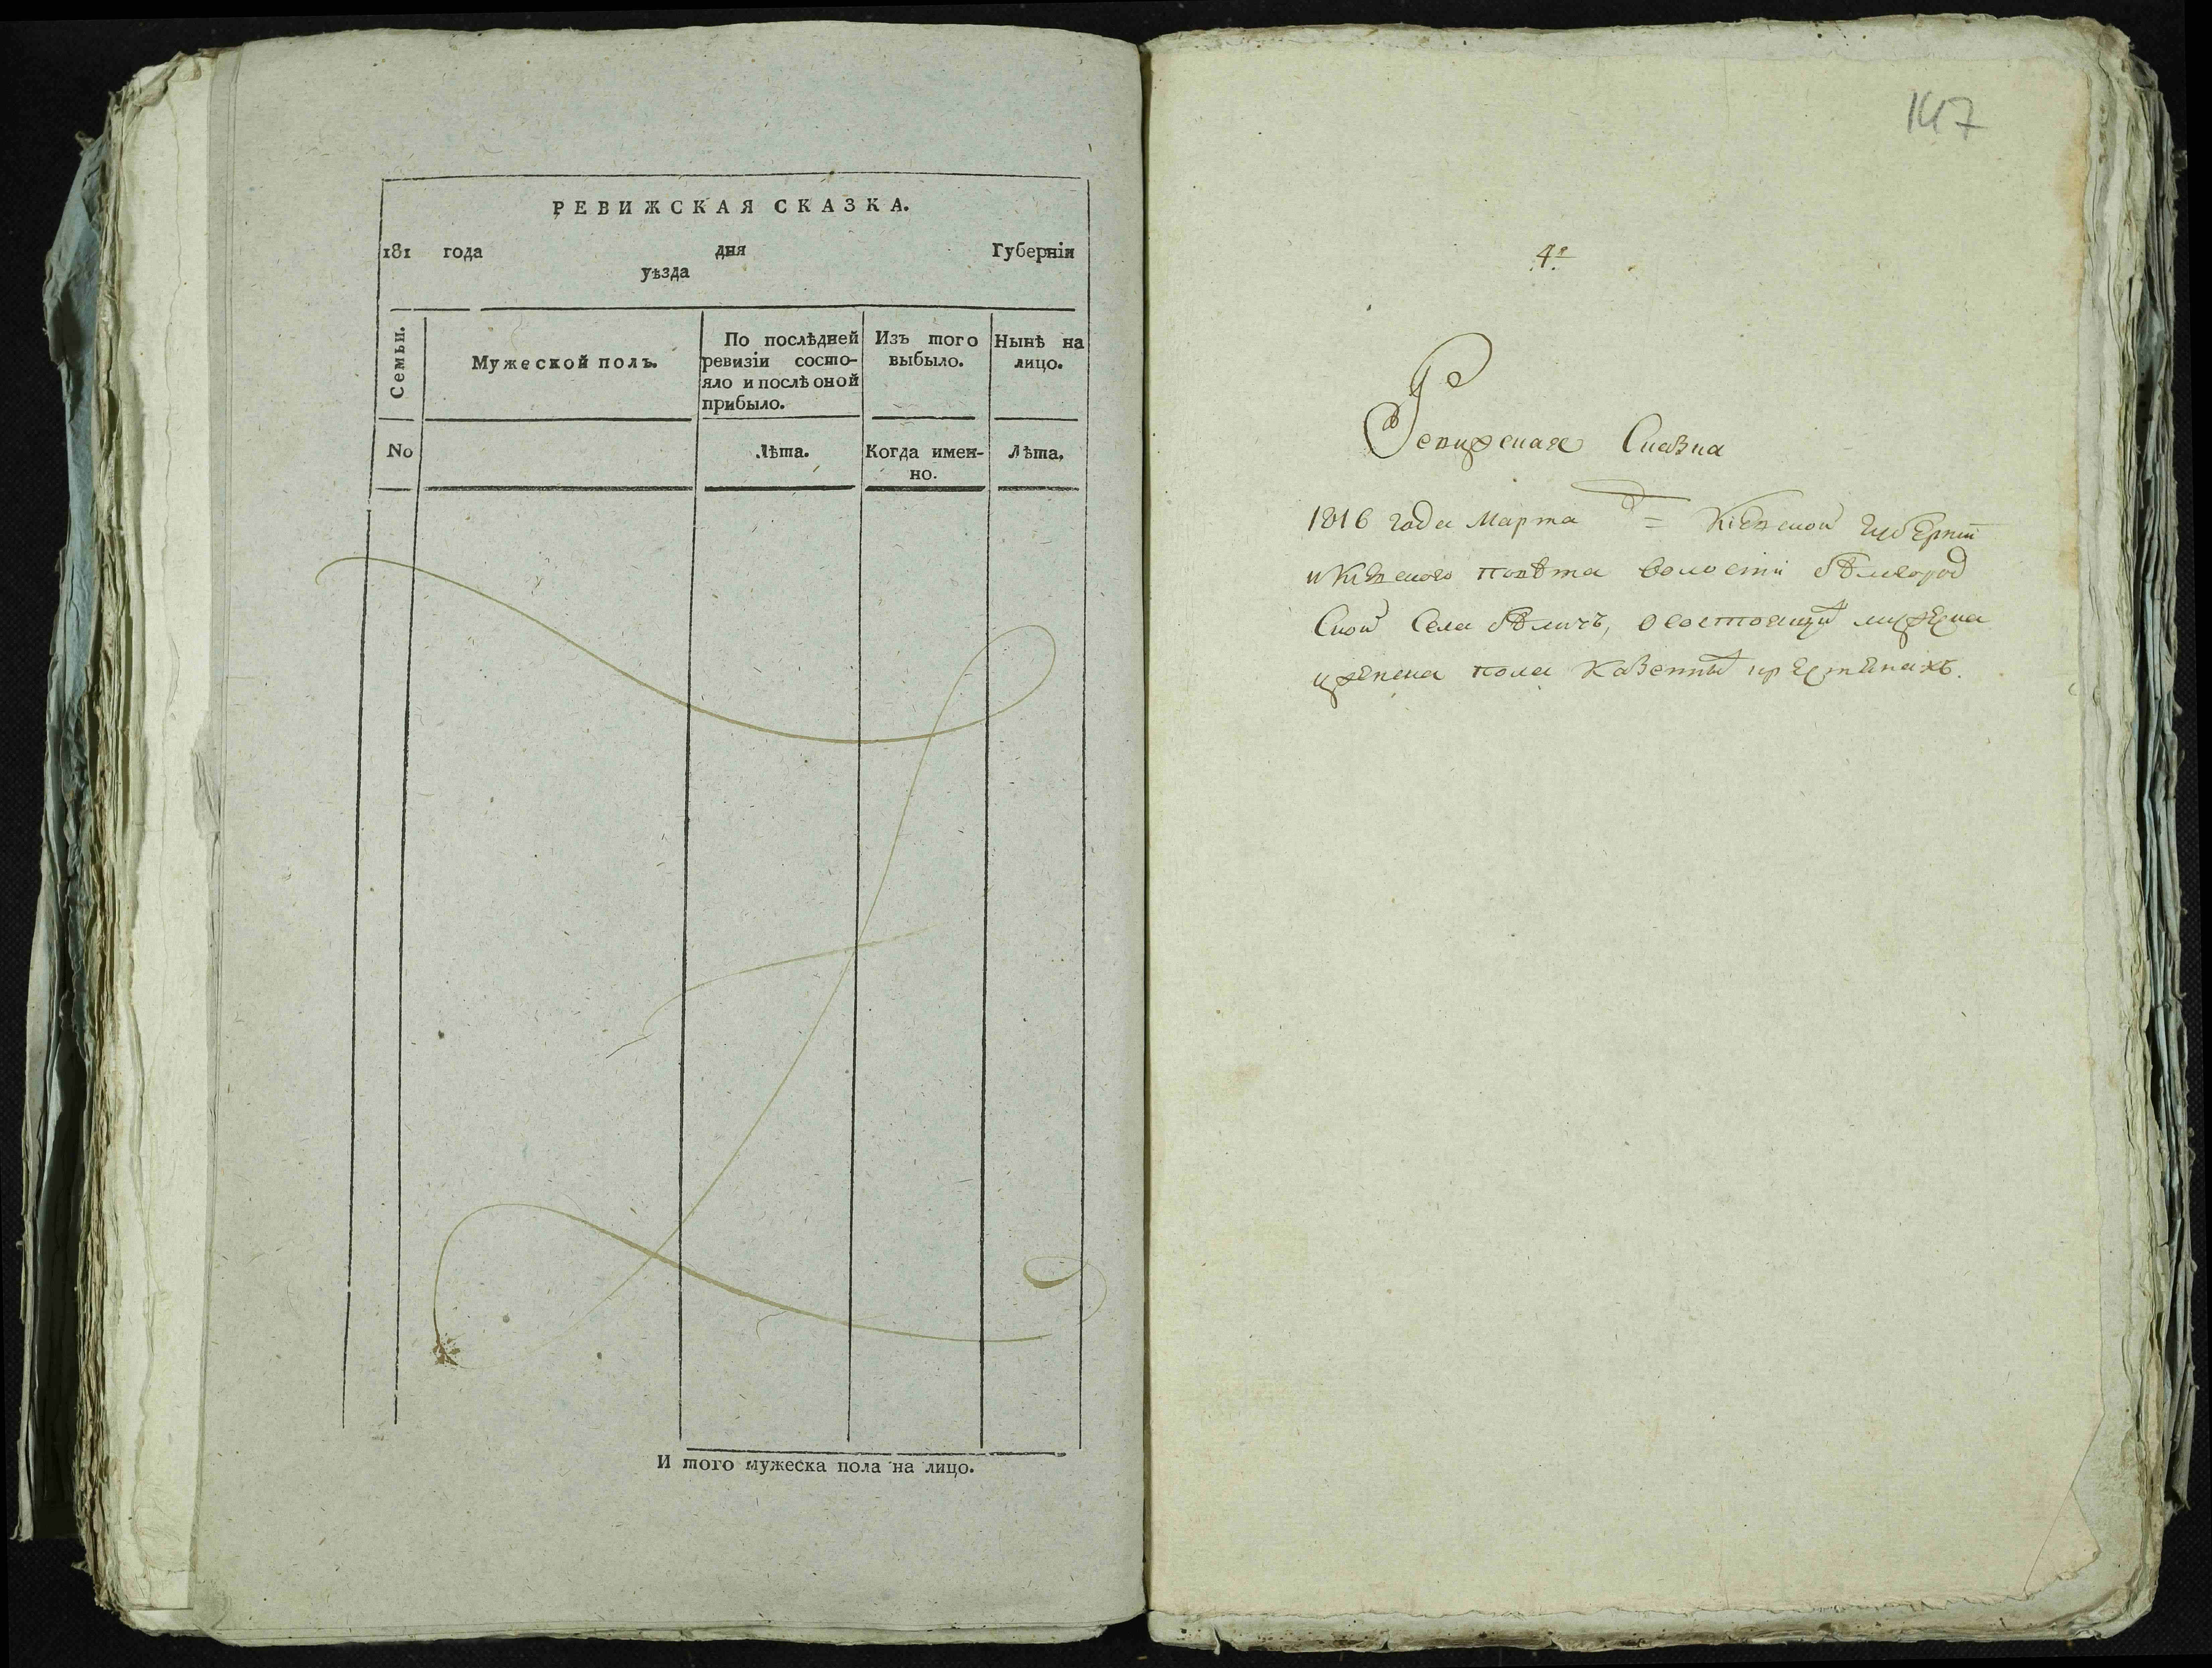 РЕВИЖСКАЯ СКАЗКА.
181 года дня Губерніи
уѣзда
Семьи.
Мужеской полъ.
По послѣдней ревизіи состо-
яло и послѣ оной
прибыло.
Изъ того
выбыло.
Нынѣ на
лицо.
No
Лѣта.
Когда имен-
но.
Лѣта.
И того мужеска пола на лицо.
147
4.
Ревижская Сказка
1816 года Марта д = Кіевской губерніи
и Кіевского повѣта волости бѣлгород
Ской Села бѣличъ, о состоящи мужеска
и женска пола Казенны крестянахъ.